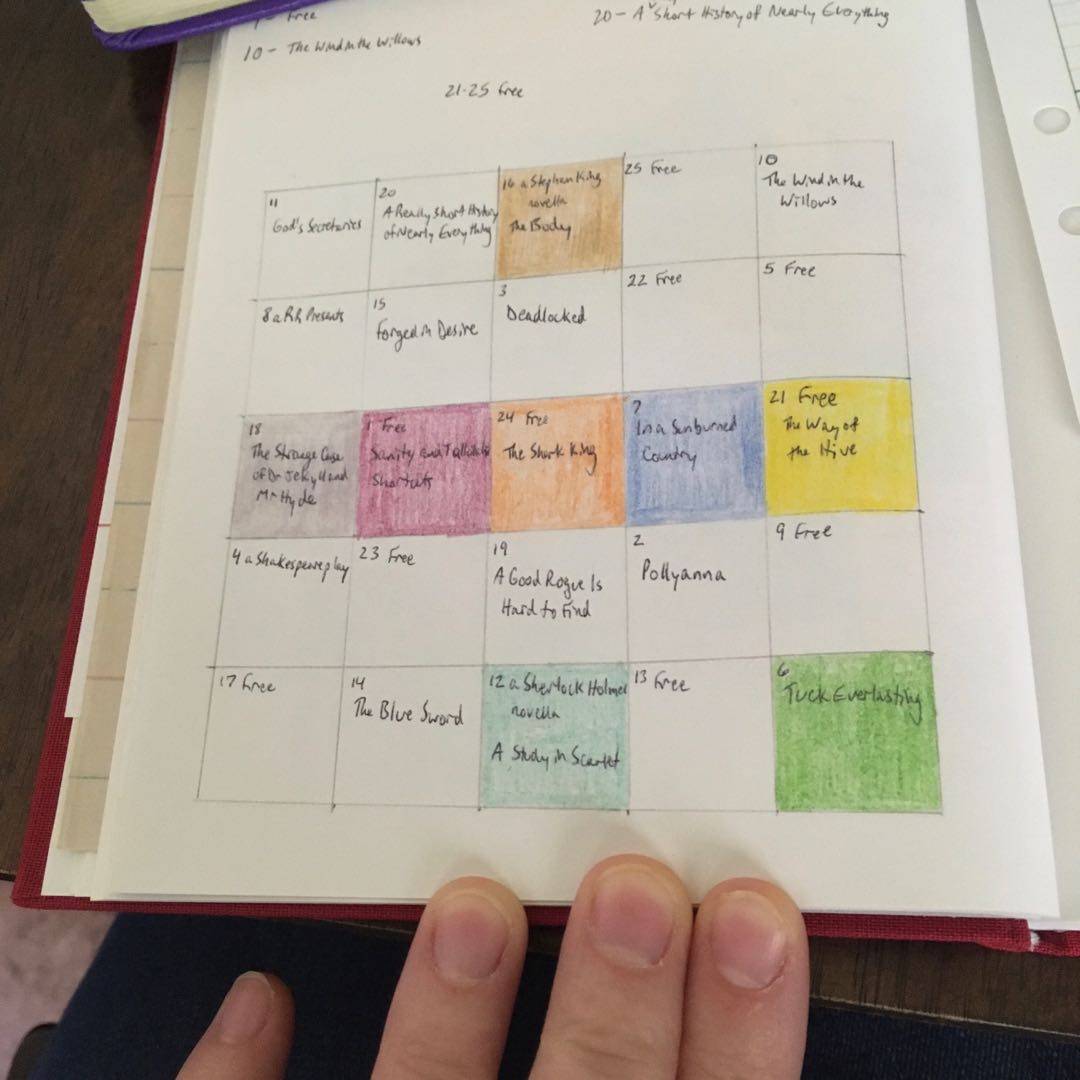 Free
10 - The Wind in the Willows
20 - A Short History of Nearly Everything
21-25 Free
11
God's Secretaries
20
A Really Short History
of Nearly Everything
16 a Stephen King
novella
The Body
25 Free
10
The Wind in the
Willows
8 a RR Presents
15
Forged in Desire
3
Deadlocked
22 Free
5 Free
18
The Strange Case
of Dr Jekyll and
Mr Hyde
1 Free
Sanity and Tallulah
Shortcuts
24 Free
The Shark King
7
In a Sunburned
Country
21 Free
The Way of
the Hive
4 a Shakespeare play
23 Free
19
A Good Rogue Is
Hard to Find
2
Pollyanna
9 Free
17 Free
14
The Blue Sword
12 a Sherlock Holmes
novella
A Study in Scarlet
13 Free
6
Tuck Everlasting